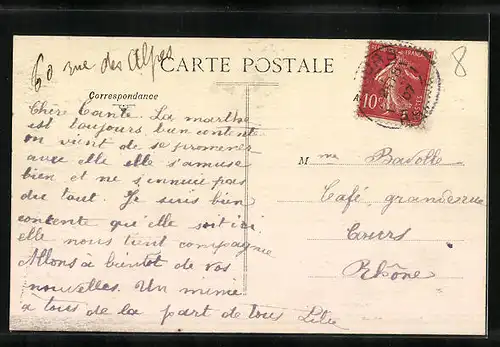 60 rue des Alpes
CARTE POSTALE
8
Correspondance
10
Chère Tante. La marthe
est toujours bien contente
on vient de se promener
avec elle elle s'amuse
bien et ne s'ennuie pas
du tout. Je suis bien
contente qu'elle soit ici
elle nous tient compagnie
Allons à bientot de vos
nouvelles. Un mime
a tous de la part de tous
Mme Badolle
Café granderue
Cours
Rhône